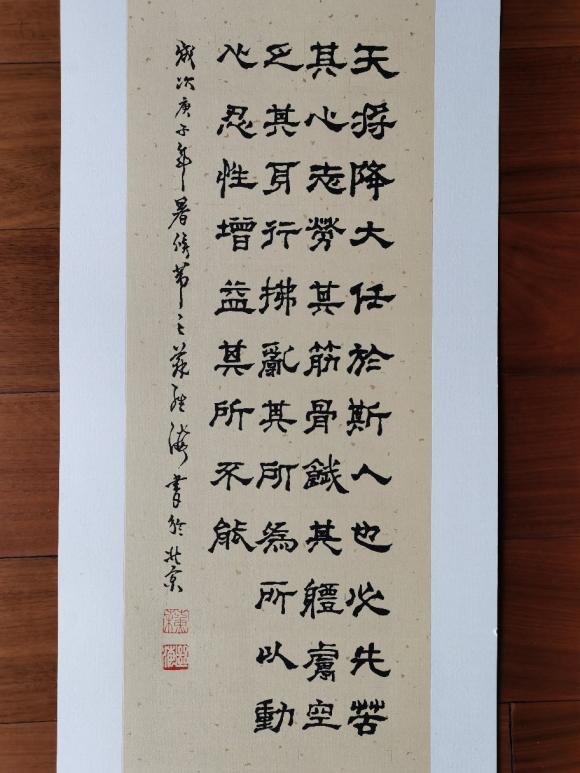 天将降大任於斯人也必先苦
其心志勞其筋骨餓其體膚空
乏其身行拂亂其所為所以動
心忍性增益其所不能
歲次庚子年暑海書於北京